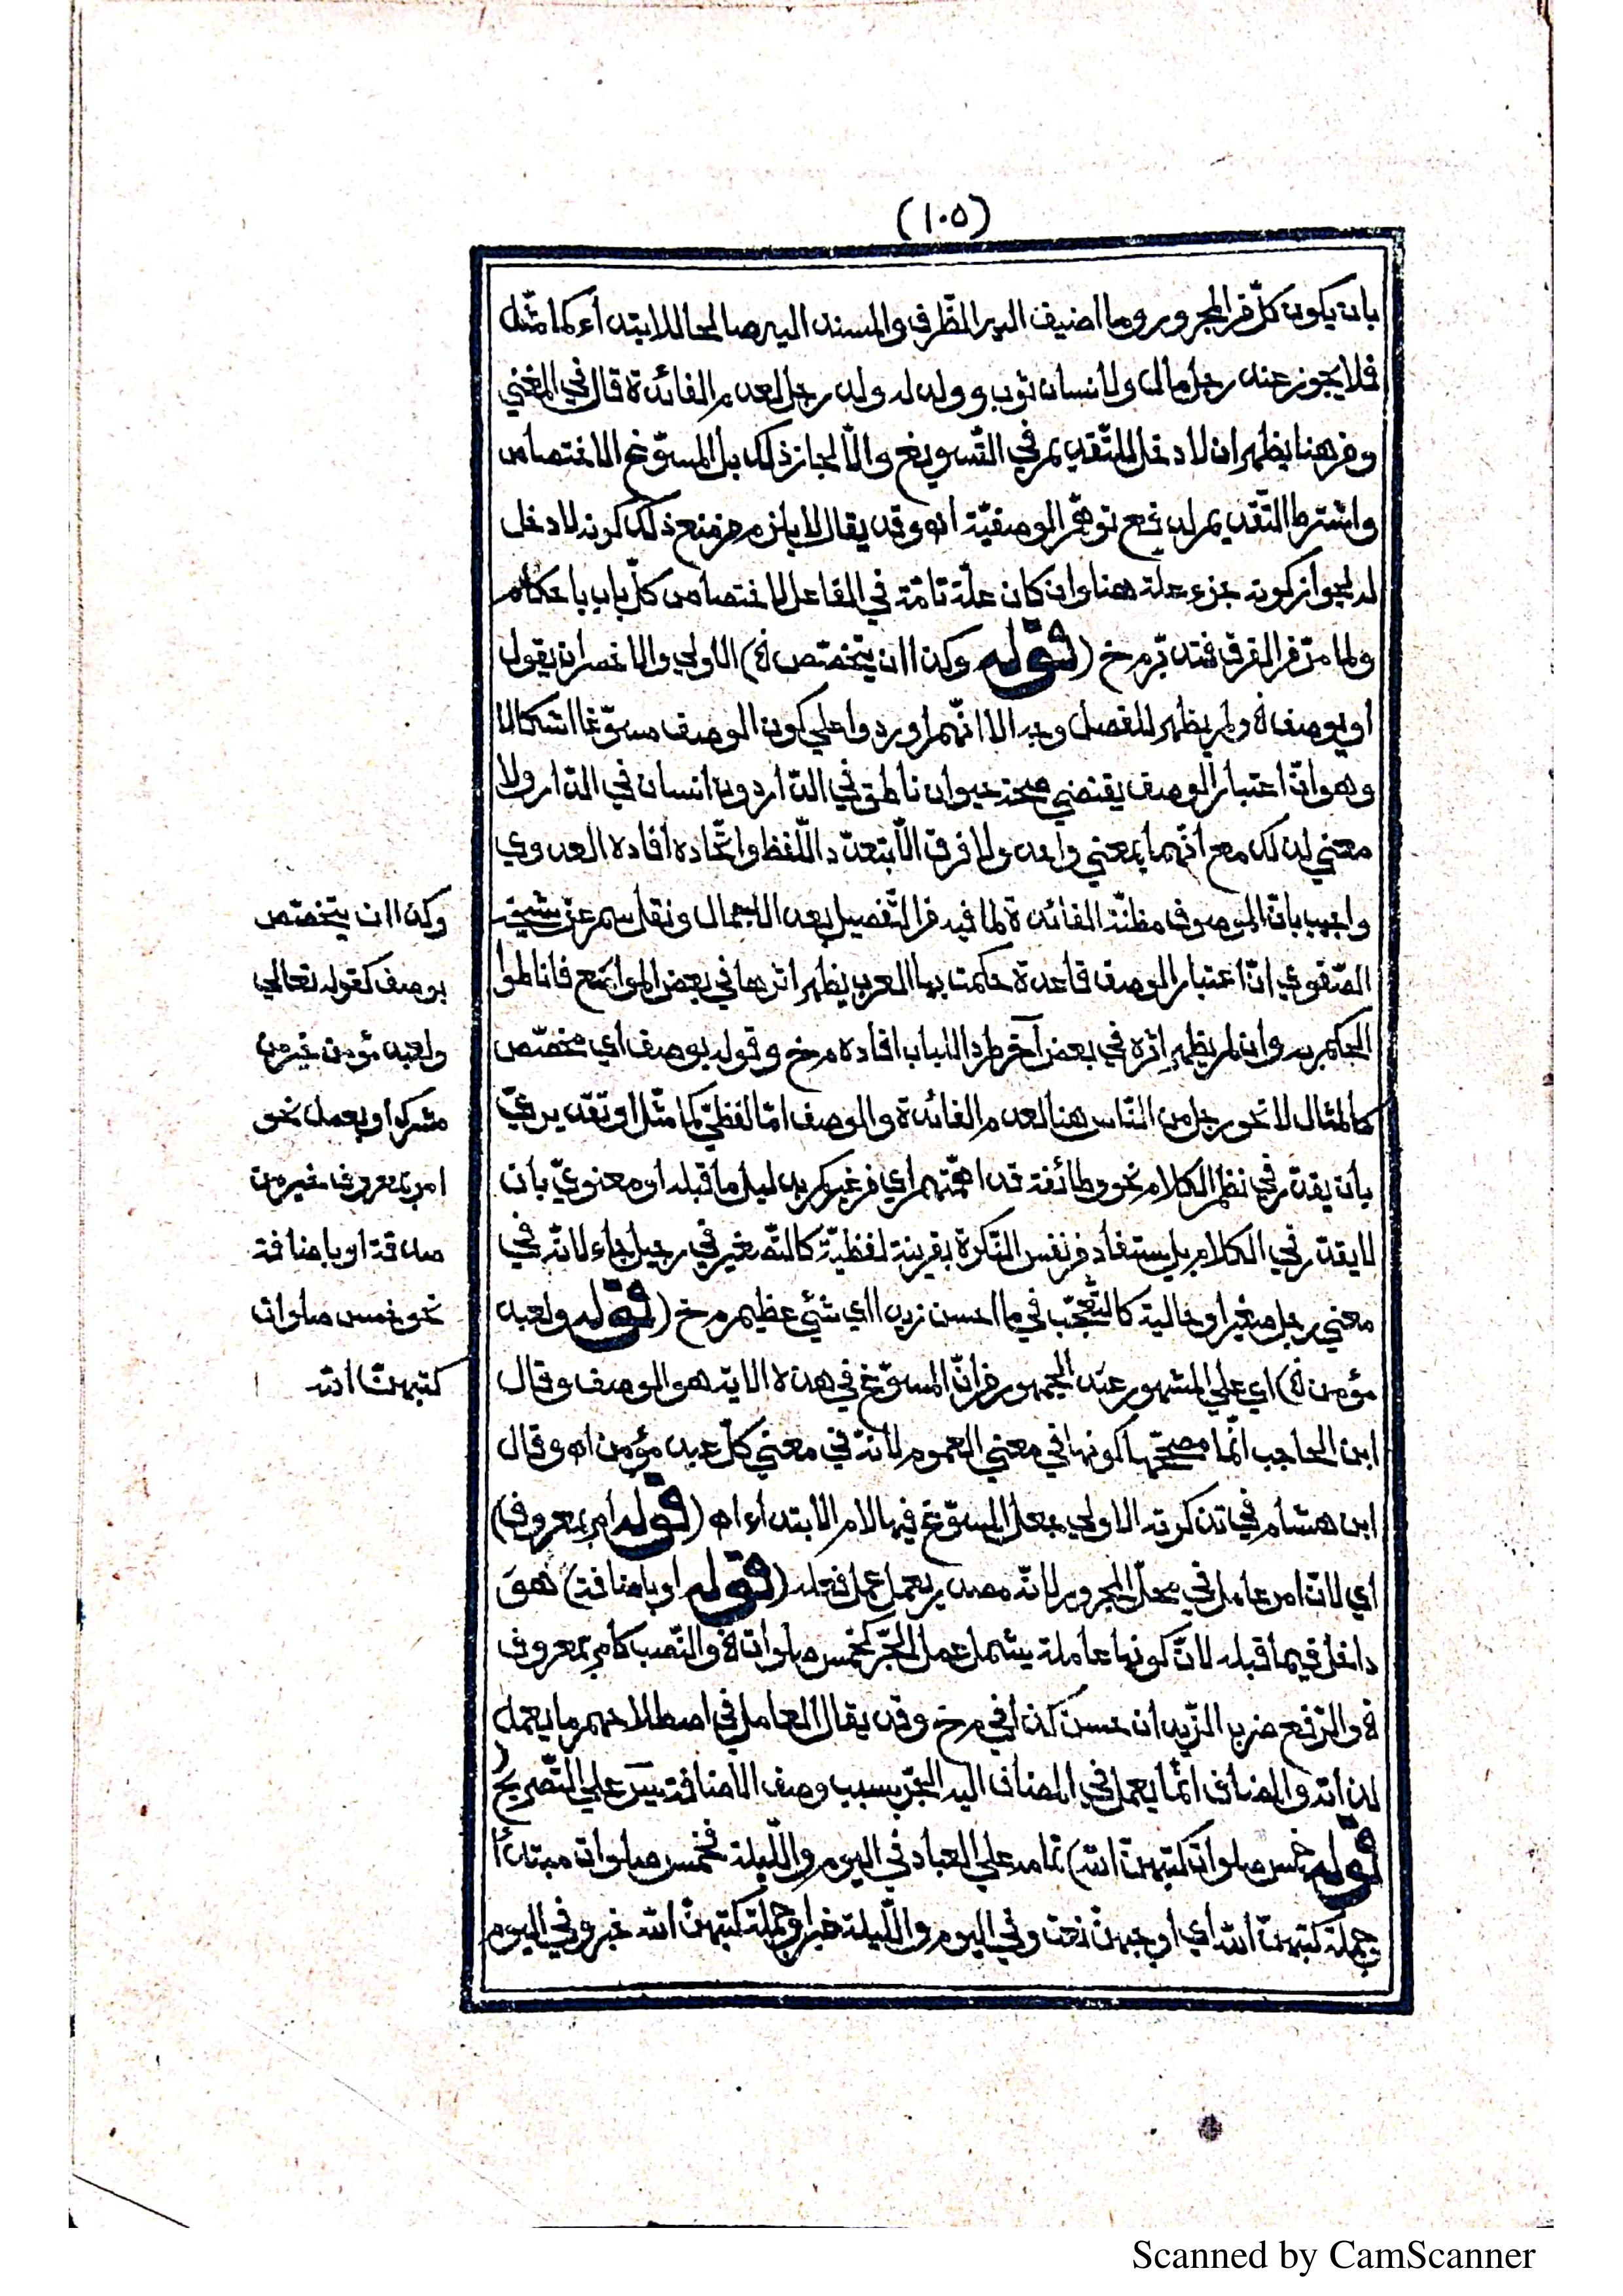 (١٠٥)
بان يكون كلّ من المجرور وما اضيف اليه الظّرف والمسند اليه صالحا للابتداء كما مثّله
فلا يجوز عند رجل مال ولانسان ثوب وولد له ولد رجل لعدم الفائدة قال في المغني
ومن هنا يظهر ان لا دخل للتّقديم في التّسويغ والّا لجاز ذلك بل المسوّغ الاختصاص
واشترط التّقديم لدفع توهّم الوصفيّة انه وقد يقال لا يلزم من منع ذلك كونه لا دخل
له لجواز كونه جزء علة هنا وان كان علّة تامّة في الفاعل لاختصاص كلّ باب باحكام
ولما مرّ من الفرق فتدبّر م خ (قوله وكذا ان يتخصّص ﻫ) الاولي والاخصر ان يقول
او بوصف ﻫ ولم يظهر للفصل وجه الا انّهم اوردوا علي كون الوصف مسوّغا اشكالا
وهو انّ اعتبار الوصف يقتضي صحّة حيوان ناطق في الدّار دون انسان في الدّار ولا
معني لذلك مع انّهما بمعني واحد ولا فرق الّا بتعدّد اللّفظ واتّحاده افاده العدوي
واجيب بانّ الموصوف مظنّة الفائدة لما فيه من التّفصيل بعد الاجمال ونقل سم عن شيخه
الصّفوي انّ اعتبار الوصف قاعدة حكمت بها العرب يظهر اثرها في بعض المواضع فاناطوا
الحكم به وان لم يظهر اثره في بعض آخر طردا للباب افاده م خ وقوله بوصف اي مخصّص
كالمثال لا نحو رجل من النّاس هنا لعدم الفائدة والوصف امّا لفظيّ كما مثّل او تقديريّ
بان يقدّر في نظم الكلام نحو وطائفة قد اهمّتهم اي من غيركم بدليل ما قبله او معنويّ بان
لا يقدّر في الكلام بل يستفاد من نفس النّكرة بقرينة لفظيّة كالتّصغير في رجيل جاء لانّه في
معني رجل صغير او حالية كالتّعجّب في ما احسن زيدا اي شئي عظيم م خ (قوله ولعبد
مؤمن ﻫ) اي علي المشهور عند الجمهور من انّ المسوّغ في هذه الاية هو الوصف وقال
ابن الحاجب انّما مصحّحها كونها في معني العموم لانّه في معني كلّ عبد مؤمن اه وقال
ابن هشام في تذكرته الاولي جعل المسوّغ فيها لام الابتداء اه (قوله امر بمعروف)
اي لانّ امر عامل في محلّ المجرور لانّه مصدر يعمل عمل فعله (قوله او باضافة) هو
داخل فيما قبله لانّ كونها عاملة يشمل عمل الجرّ كخمس صلوات ﻫ والنّصب كامر بمعروف
ﻫ والرّفع ضرب الزّيدان حسن كذا في م خ وقد يقال العامل في اصطلاحهم ما يعمل
لذاته والمضاف انّما يعمل في المضاف اليه الجرّ بسبب وصف الاضافة يس علي التّصريح (
قوله خمس صلوات كتبهنّ الله) تمامه علي العباد في اليوم واللّيلة فخمس صلوات مبتدأ
وجملة كتبهنّ الله اي اوجبهنّ نعت وفي اليوم واللّيلة خبر او جملة كتبهنّ الله خبر وفي اليوم
وكذا ان يتخصّص
بوصف كقوله تعالي
ولعبد مؤمن خير من
مشرك او بعمل نحو
امر بمعروف خير من
صدقة او باضافة
نحو خمس صلوات
كتبهنّ الله
Scanned by CamScanner